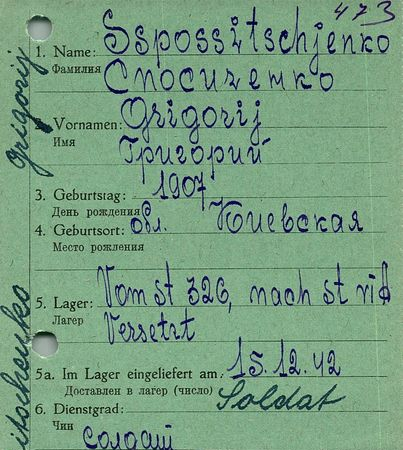 473
1. Name: Sspossitschjenko
Фамилия Спосиченко
2. Vornamen: Grigorij
Имя Григорий
3. Geburtstag: 1907
День рождения
4. Geburtsort: обл. Киевская
Место рождения
5. Lager: Vom st 326, nach st VI A
Лагерь Versetzt
5a. Im Lager eingeliefert am: 15.12.42
Доставлен в лагерь (число)
6. Dienstgrad: Soldat
Чин солдат
Grigorij